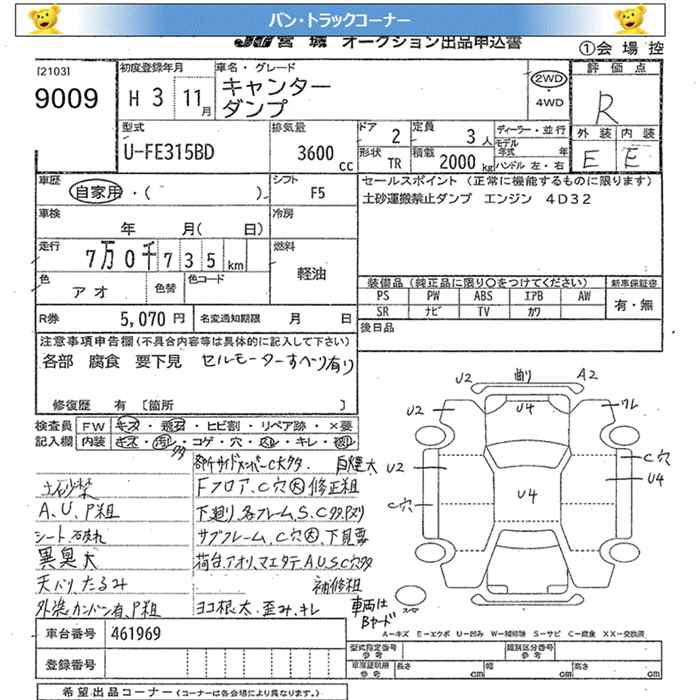 バン・トラックコーナー
宮城 オークション出品申込書
①会場控
[2103]
9009
初度登録年月
H 3 11月
車名・グレード
キャンター
ダンプ
2WD
4WD
評価点
R
外装 内装
E E
型式
U-FE315BD
排気量
3600cc
ドア 2
定員 3人
形状 TR
積載 2000kg
ディーラー・並行
モデル年式 年
ハンドル 左・右
車歴
自家用・( )
シフト
F5
セールスポイント (正常に機能するものに限ります)
土砂運搬禁止ダンプ エンジン 4D32
車検
年 月( 日)
冷房
走行
7万0千735km
燃料
軽油
色
アオ
色替
色コード
装備品 (純正品に限り○をつけてください)
新車保証書
PS PW ABS エアB AW
SR ナビ TV カワ
有・無
R券 5,070円
名変通知期限 月 日
後日品
注意事項申告欄(不具合内容等は具体的に記入して下さい)
各部 腐食 要下見 セルモーターすべり有り
修復歴 有 [箇所 ]
検査員記入欄
FW キズ・飛石・ヒビ割・リペア跡・×要
内装 キズ・汚レ・コゲ・穴・スレ・キレ・
土砂禁
A、U、P粗
シート破れ
異臭大
天バリ、たるみ
白煙大
Fフロア、C穴大修正粗
下廻り、各フレーム、S、C
サブフレーム、C穴大、下見要
荷台、アオリ、A、U、S、C穴
補修粗
ヨコ根太、歪み、キレ
車両はBヤード
U2 曲り A2
U2 U4 ワレ
U2 C穴
U4 U4
C穴
車台番号 461969
登録番号
A-キズ E-エクボ U-凹み W-補修跡 S-サビ C-腐食 XX-交換済
型式指定番号 参考
類別区分番号 参考
車庫証明用 参考
長さ cm 幅 cm 高さ cm
希望出品コーナー (コーナーは各会場により異なります。)